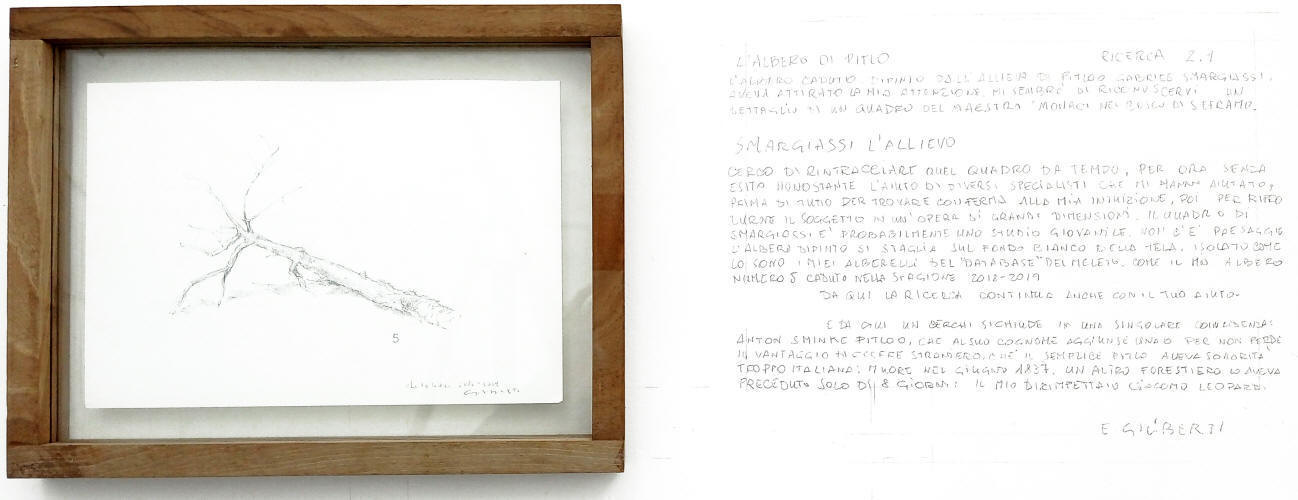 5
L'ALBERO DI PITLO RICERCA 2.1
L'ALBERO CADUTO DIPINTO DALL'ALLIEVO DI PITLOO GABRIELE SMARGIASSI,
AVEVA ATTIRATO LA MIA ATTENZIONE. MI SEMBRÒ DI RICONOSCERVI UN
DETTAGLIO DI UN QUADRO DEL MAESTRO MONACI NEL BOSCO DI
SMARGIASSI L'ALLIEVO
CERCO DI RINTRACCIARE QUEL QUADRO DA TEMPO, PER ORA SENZA
ESITO NONOSTANTE L'AIUTO DI DIVERSI SPECIALISTI CHE MI HANNO AIUTATO,
PRIMA DI TUTTO PER TROVARE CONFERMA ALLA MIA INTUIZIONE, POI PER RIPRO
DURNE IL SOGGETTO IN UN'OPERA DI GRANDI DIMENSIONI. IL QUADRO DI
SMARGIASSI E' PROBABILMENTE UNO STUDIO GIOVANILE. NON C'E' PAESAGGIO
L'ALBERO DIPINTO SI STAGLIA SUL FONDO BIANCO DELLA TELA, ISOLATO COME
LO SONO I MIEI ALBERELLI DEL "DATABASE" DEL MELETO. COME IL MIO ALBERO
NUMERO 5 CADUTO NELLA STAGIONE 2018-2019
DA QUI LA RICERCA CONTINUA ANCHE CON IL TUO AIUTO.
E DA QUI UN CERCHIO SI CHIUDE IN UNA SINGOLARE COINCIDENZA:
ANTON SMINKE PITLOO, CHE AL SUO COGNOME AGGIUNSE UNA O PER NON PERDE
IL VANTAGGIO DI ESSERE STRANIERO, CHE' IL SEMPLICE PITLO AVEVA SONORITA'
TROPPO ITALIANA: MUORE NEL GIUGNO 1837. UN ALTRO FORESTIERO LO AVEVA
PRECEDUTO SOLO DI 8 GIORNI: IL MIO DIRIMPETTAIO GIACOMO LEOPARDI
E GIUBERTI